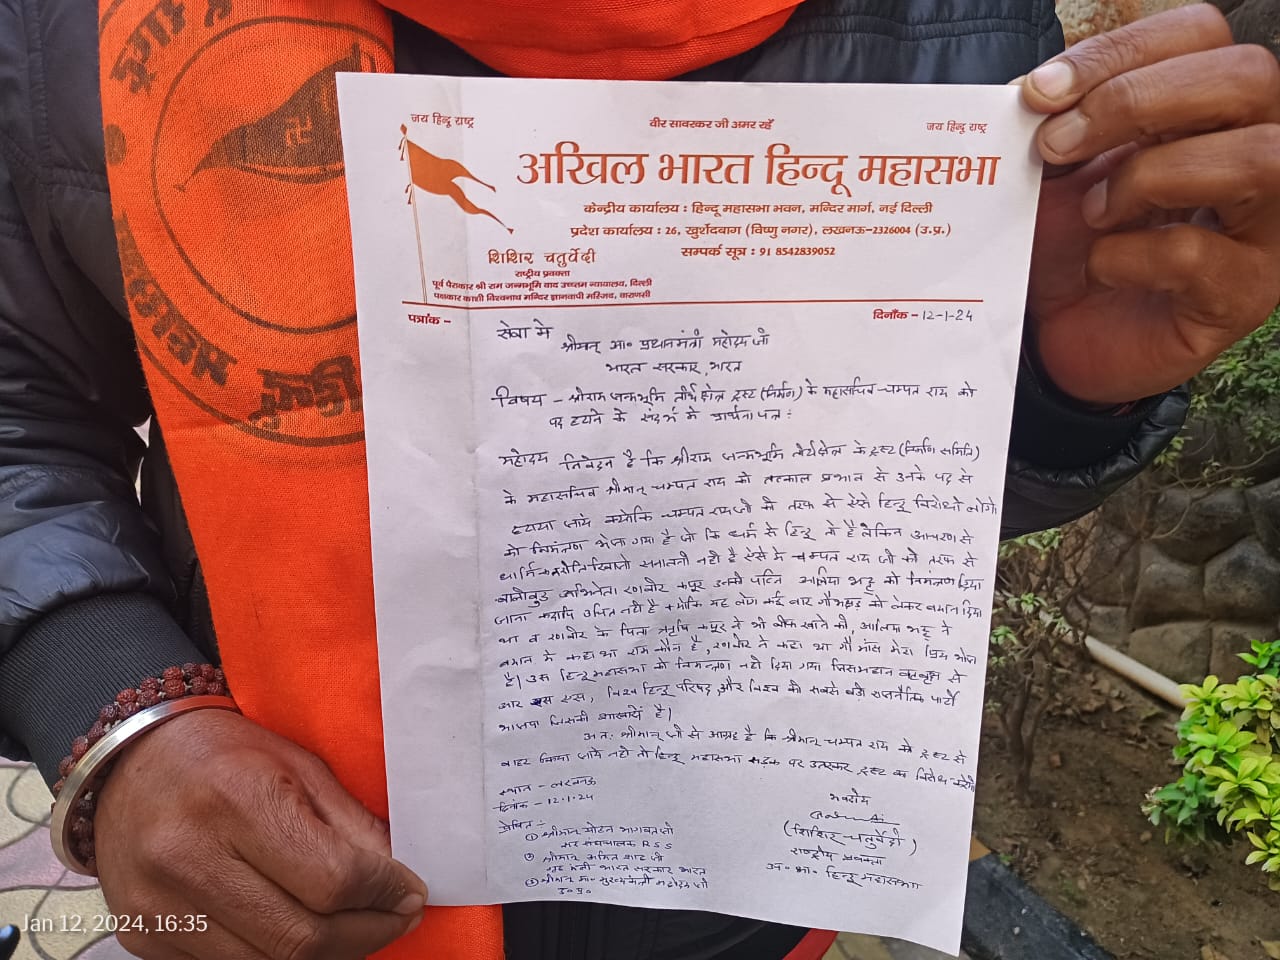 जय हिन्दू राष्ट्र
वीर सावरकर जी अमर रहें
जय हिन्दू राष्ट्र
अखिल भारत हिन्दू महासभा
केन्द्रीय कार्यालय : हिन्दू महासभा भवन, मन्दिर मार्ग, नई दिल्ली
प्रदेश कार्यालय : 26, खुर्शेदबाग (विष्णु नगर), लखनऊ-2326004 (उ.प्र.)
शिशिर चतुर्वेदी
सम्पर्क सूत्र : 91 8542839052
राष्ट्रीय प्रवक्ता
पूर्व पैरोकार श्री राम जन्मभूमि वाद उच्चतम न्यायालय, दिल्ली
पक्षकार काशी विश्वनाथ मन्दिर ज्ञानवापी मस्जिद, वाराणसी
पत्रांक -
दिनाँक - 12-1-24
सेवा में
श्रीमन् मा० प्रधानमंत्री महोदय जी
भारत सरकार, भारत
विषय - श्रीराम जन्मभूमि तीर्थ क्षेत्र ट्रस्ट (निर्माण) के महासचिव चम्पत राय को
पद हटाने के संदर्भ में प्रार्थना पत्र :
महोदय निवेदन है कि श्रीराम जन्मभूमि तीर्थक्षेत्र के ट्रस्ट (निर्माण समिति)
के महासचिव श्रीमान् चम्पत राय को तत्काल प्रभाव से उनके पद से
हटाया जाये क्योकि चम्पत राय जी की तरफ से ऐसे हिन्दू विरोधी लोगो
को निमंत्रण भेजा गया है जो कि धर्म से हिन्दू तो है लेकिन आचरण से
सनातनी नही है ऐसे मे चम्पत राय जी की तरफ से
बालीवुड अभिनेता रणबीर कपूर उनकी पत्नि आलिया भट्ट को निमंत्रण दिया
जाना कदापि उचित नही है क्योकि यह लोग कई बार गौभक्षण को लेकर बयान दिया
था व रणबीर के पिता ऋषि कपूर ने भी बीफ खाने की, आलिया भट्ट ने
बयान मे कहा था राम कौन है, रणबीर ने कहा था गौ मांस मेरा प्रिय भोज
है। उस हिन्दू महासभा को निमन्त्रण नही दिया गया जिस से
आर एस एस, विश्व हिन्दू परिषद और विश्व की सबसे बड़ी राजनैतिक पार्टी
भाजपा जिसकी शाखायें है।
अतः श्रीमान् जी से आग्रह है कि श्रीमान् चम्पत राय को ट्रस्ट से
बाहर किया जाये नही तो हिन्दू महासभा सड़क पर उतरकर ट्रस्ट का विरोध करेगी
स्थान - लखनऊ
दिनांक - 12.1.24
भवदीय
(शिशिर चतुर्वेदी)
राष्ट्रीय प्रवक्ता
अ० भा० हिन्दू महासभा
प्रेषित :-
① श्रीमान् मोहन भागवत जी
सर संघचालक RSS
② श्रीमान् अमित शाह जी
गृह मंत्री भारत सरकार भारत
③ श्रीमान् मा० मुख्यमंत्री महोदय जी
उ० प्र०
Jan 12, 2024, 16:35